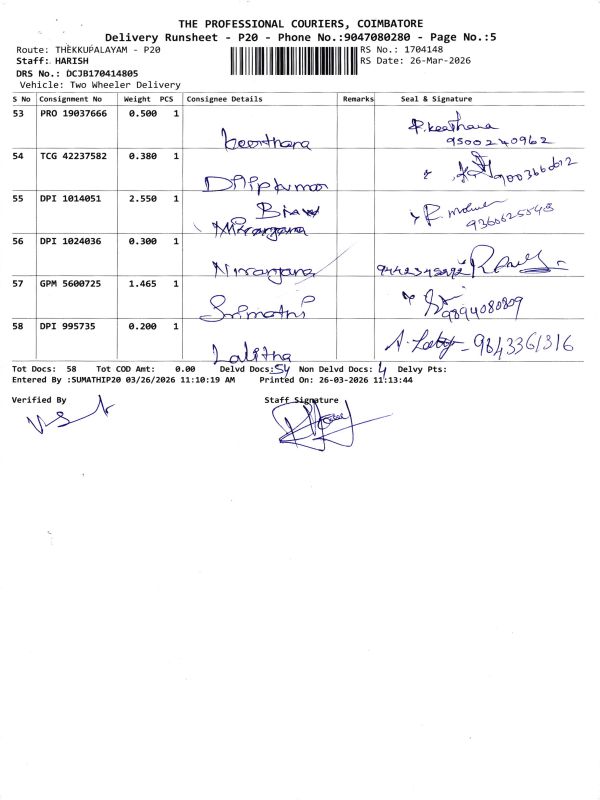 THE PROFESSIONAL COURIERS, COIMBATORE
Delivery Runsheet - P20 - Phone No.:9047080280 - Page No.:5
Route: THEKKUPALAYAM - P20
RS No.: 1704148
Staff: HARISH
RS Date: 26-Mar-2026
DRS No.: DCJB170414805
Vehicle: Two Wheeler Delivery
S No Consignment No Weight PCS Consignee Details Remarks Seal & Signature
53 PRO 19037666 0.500 1
Keerthana P.Keerthana
9500240962
54 TCG 42237582 0.380 1
Dilipkumar 9003660612
55 DPI 1014051 2.550 1
Niranjana
9360625848
56 DPI 1024036 0.300 1
Niranjana
57 GPM 5600725 1.465 1
Srimathi 9894080809
58 DPI 995735 0.200 1
Lalitha 9843361316
Tot Docs: 58 Tot COD Amt: 0.00 Delvd Docs:54 Non Delvd Docs: 4 Delvy Pts:
Entered By :SUMATHIP20 03/26/2026 11:10:19 AM Printed On: 26-03-2026 11:13:44
Verified By Staff Signature